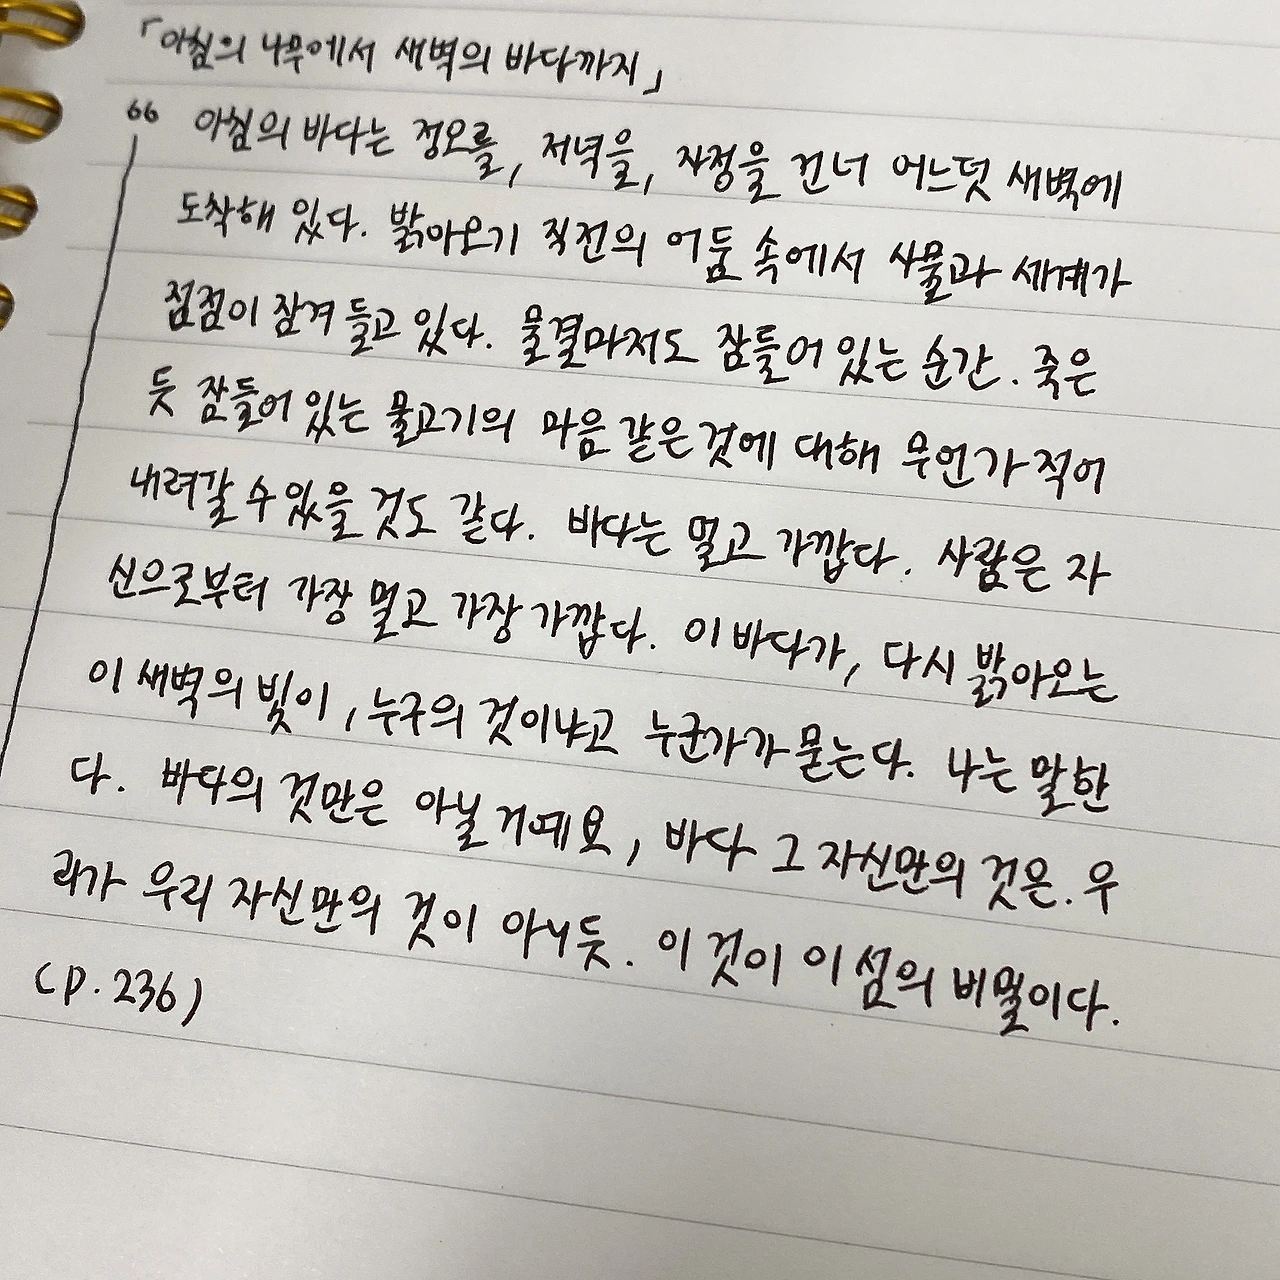 「아침의 나무에서 새벽의 바다까지」
“ 아침의 바다는 정오를, 저녁을, 자정을 건너 어느덧 새벽에
도착해 있다. 밝아오기 직전의 어둠 속에서 사물과 세계가
점점이 잠겨 들고 있다. 물결마저도 잠들어 있는 순간. 죽은
듯 잠들어 있는 물고기의 마음 같은 것에 대해 무언가 적어
내려갈 수 있을 것도 같다. 바다는 멀고 가깝다. 사람은 자
신으로부터 가장 멀고 가장 가깝다. 이 바다가, 다시 밝아오는
이 새벽의 빛이, 누구의 것이냐고 누군가가 묻는다. 나는 말한
다. 바다의 것만은 아닐 거예요, 바다 그 자신만의 것은. 우
리가 우리 자신만의 것이 아니듯. 이것이 이 섬의 비밀이다.
(p. 236)